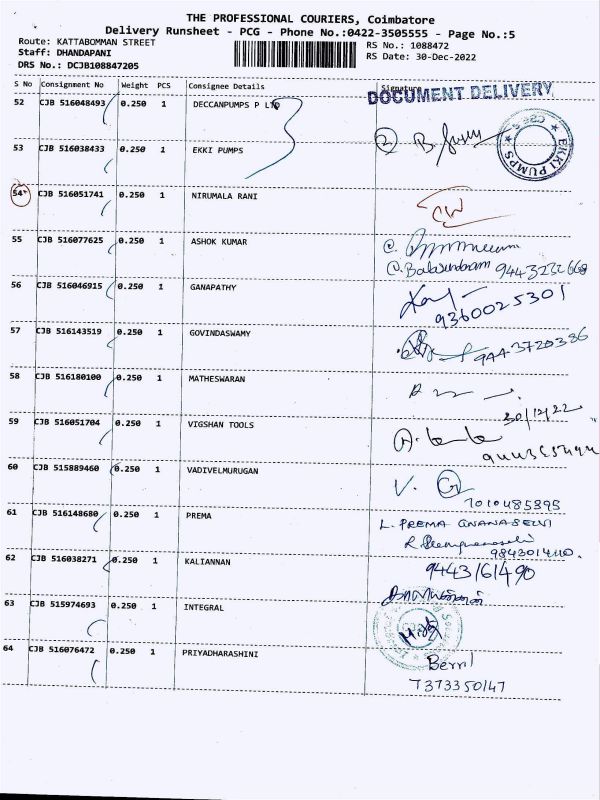 THE PROFESSIONAL COURIERS, Coimbatore
Delivery Runsheet - PCG - Phone No.:0422-3505555 - Page No.:5
Route: KATTABOMMAN STREET RS No.: 1088472
Staff: DHANDAPANI RS Date: 30-Dec-2022
DRS No.: DCJB108847205
S No Consignment No Weight PCS Consignee Details Signature
DOCUMENT DELIVERY
52 CJB 516048493 0.250 1 DECCANPUMPS P LTD
53 CJB 516038433 0.250 1 EKKI PUMPS
EKKI PUMPS
54 CJB 516051741 0.250 1 NIRUMALA RANI
55 CJB 516077625 0.250 1 ASHOK KUMAR
9443232668
56 CJB 516046915 0.250 1 GANAPATHY
9360025301
57 CJB 516143519 0.250 1 GOVINDASWAMY
9443720386
58 CJB 516180100 0.250 1 MATHESWARAN
30/12/22
59 CJB 516051704 0.250 1 VIGSHAN TOOLS
60 CJB 515889460 0.250 1 VADIVELMURUGAN
7010485395
61 CJB 516148680 0.250 1 PREMA
L. PREMA GNANASELVI
62 CJB 516038271 0.250 1 KALIANNAN
9443161490
63 CJB 515974693 0.250 1 INTEGRAL
64 CJB 516076472 0.250 1 PRIYADHARASHINI
7373350147